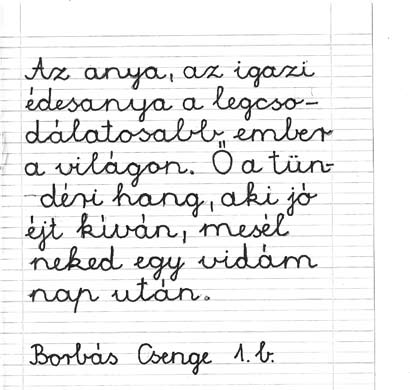 Az anya, az igazi
édesanya a legcso-
dálatosabb ember
a világon. Ő a tün-
déri hang, aki jó
éjt kíván, mesél
neked egy vidám
nap után.
Borbás Csenge 1.b.